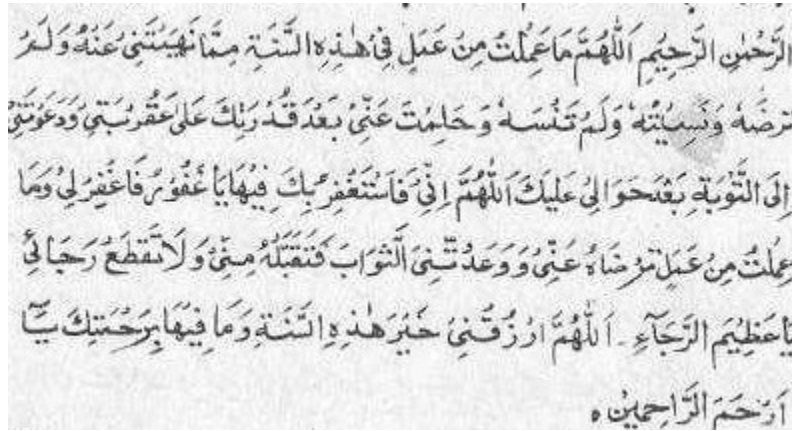 الرَّحْمٰنِ الرَّحِيْمِ اَللّٰهُمَّ مَا عَمِلْتُ مِنْ عَمَلٍ فِيْ هٰذِهِ السَّنَةِ مِمَّا نَهَيْتَنِيْ عَنْهُ وَلَمْ
تَرْضَهُ وَنَسِيْتُهُ وَلَمْ تَنْسَهُ وَحَلِمْتَ عَنِّيْ بَعْدَ قُدْرَتِكَ عَلٰى عُقُوْبَتِيْ وَدَعَوْتَنِيْ
اِلَى التَّوْبَةِ بَعْدَ حَوَالِيْ عَلَيْكَ اَللّٰهُمَّ اِنِّيْ فَاسْتَغْفِرُكَ فِيْهَا يَا غَفُوْرُ فَاغْفِرْ لِيْ وَمَا
عَمِلْتُ مِنْ عَمَلٍ تَرْضَاهُ عَنِّيْ وَوَعَدْتَنِيَ الثَّوَابَ فَتَقَبَّلْهُ مِنِّيْ وَلَا تَقْطَعْ رَجَائِيْ
يَا عَظِيْمَ الرَّجَآءِ۔ اَللّٰهُمَّ ارْزُقْنِيْ خَيْرَ هٰذِهِ السَّنَةِ وَمَا فِيْهَا بِرَحْمَتِكَ يَآ
اَرْحَمَ الرَّاحِمِيْنَ ه